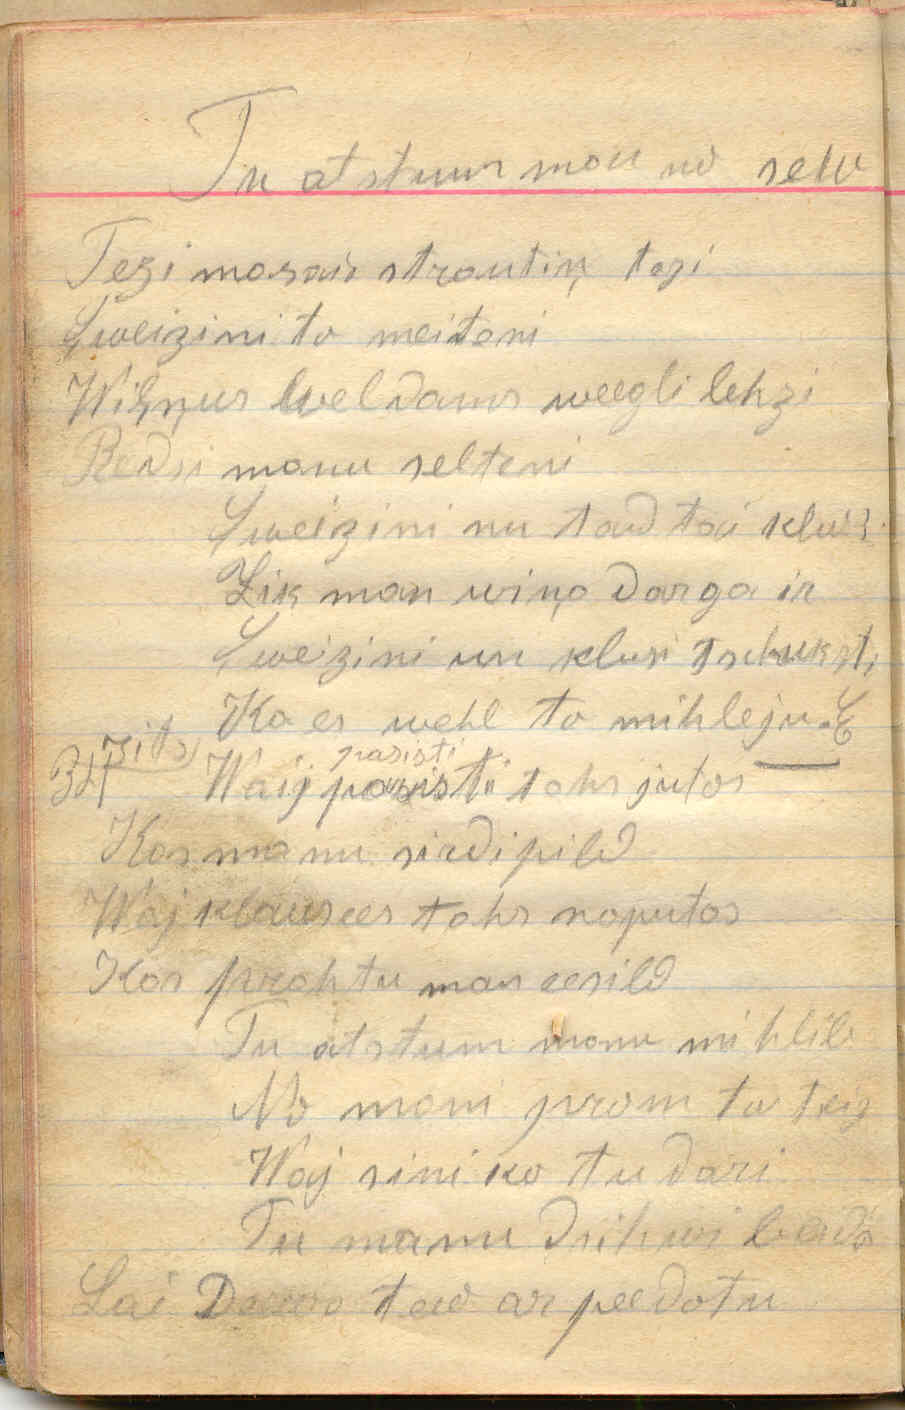 Tu atstum man no sew
Tezi masais strautiņ tezi
Sweizini to meiteni
Wiļņus weldams weegli lehzi
Redsi manu selteni
Sweizini nu tad tai klus
Zik man wiņa darga ir
Sweizini un klusi tschuksti
Ka es wehl to mihleju
zits) pasisti
34 Waij pasisti tahs jutos
Kas manu sirdi pild
Waj klausees tahs noputas
Kas prahtu man eesild
Tu atstum manu mihlib
No mani prom to teiz
Waj sini ko tu dari
Tu manu dsihwi beids
Lai Deews tew ar peedotu